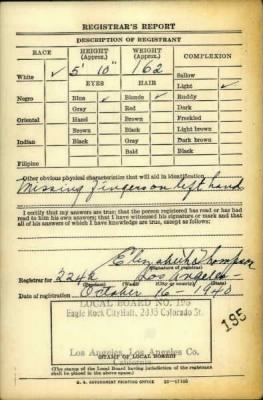 REGISTRAR'S REPORT
DESCRIPTION OF REGISTRANT
RACE HEIGHT (Approx.) WEIGHT (Approx.) COMPLEXION
White ✓ 5' 10" 162 Sallow
EYES HAIR Light ✓
Negro Blue ✓ Blonde ✓ Ruddy
Gray Red Dark
Oriental Hazel Brown Freckled
Brown Black Light brown
Indian Black Gray Dark brown
Bald Black
Filipino
Other obvious physical characteristics that will aid in identification
Missing fingers on left hand
I certify that my answers are true; that the person registered has read or has had
read to him his own answers; that I have witnessed his signature or mark and that
all of his answers of which I have knowledge are true, except as follows:
Elizabeth Thompson
(Signature of registrar)
Registrar for 224 Los Angeles
(Precinct) (Ward) (City or county)
Date of registration October 16 - 1940
LOCAL BOARD NO. 195
Eagle Rock City Hall, 2035 Colorado St.
195
Los Angeles, Los Angeles Co.
California
(STAMP OF LOCAL BOARD)
(The stamp of the Local Board having jurisdiction of the registrant
shall be placed in the above space.)
U. S. GOVERNMENT PRINTING OFFICE